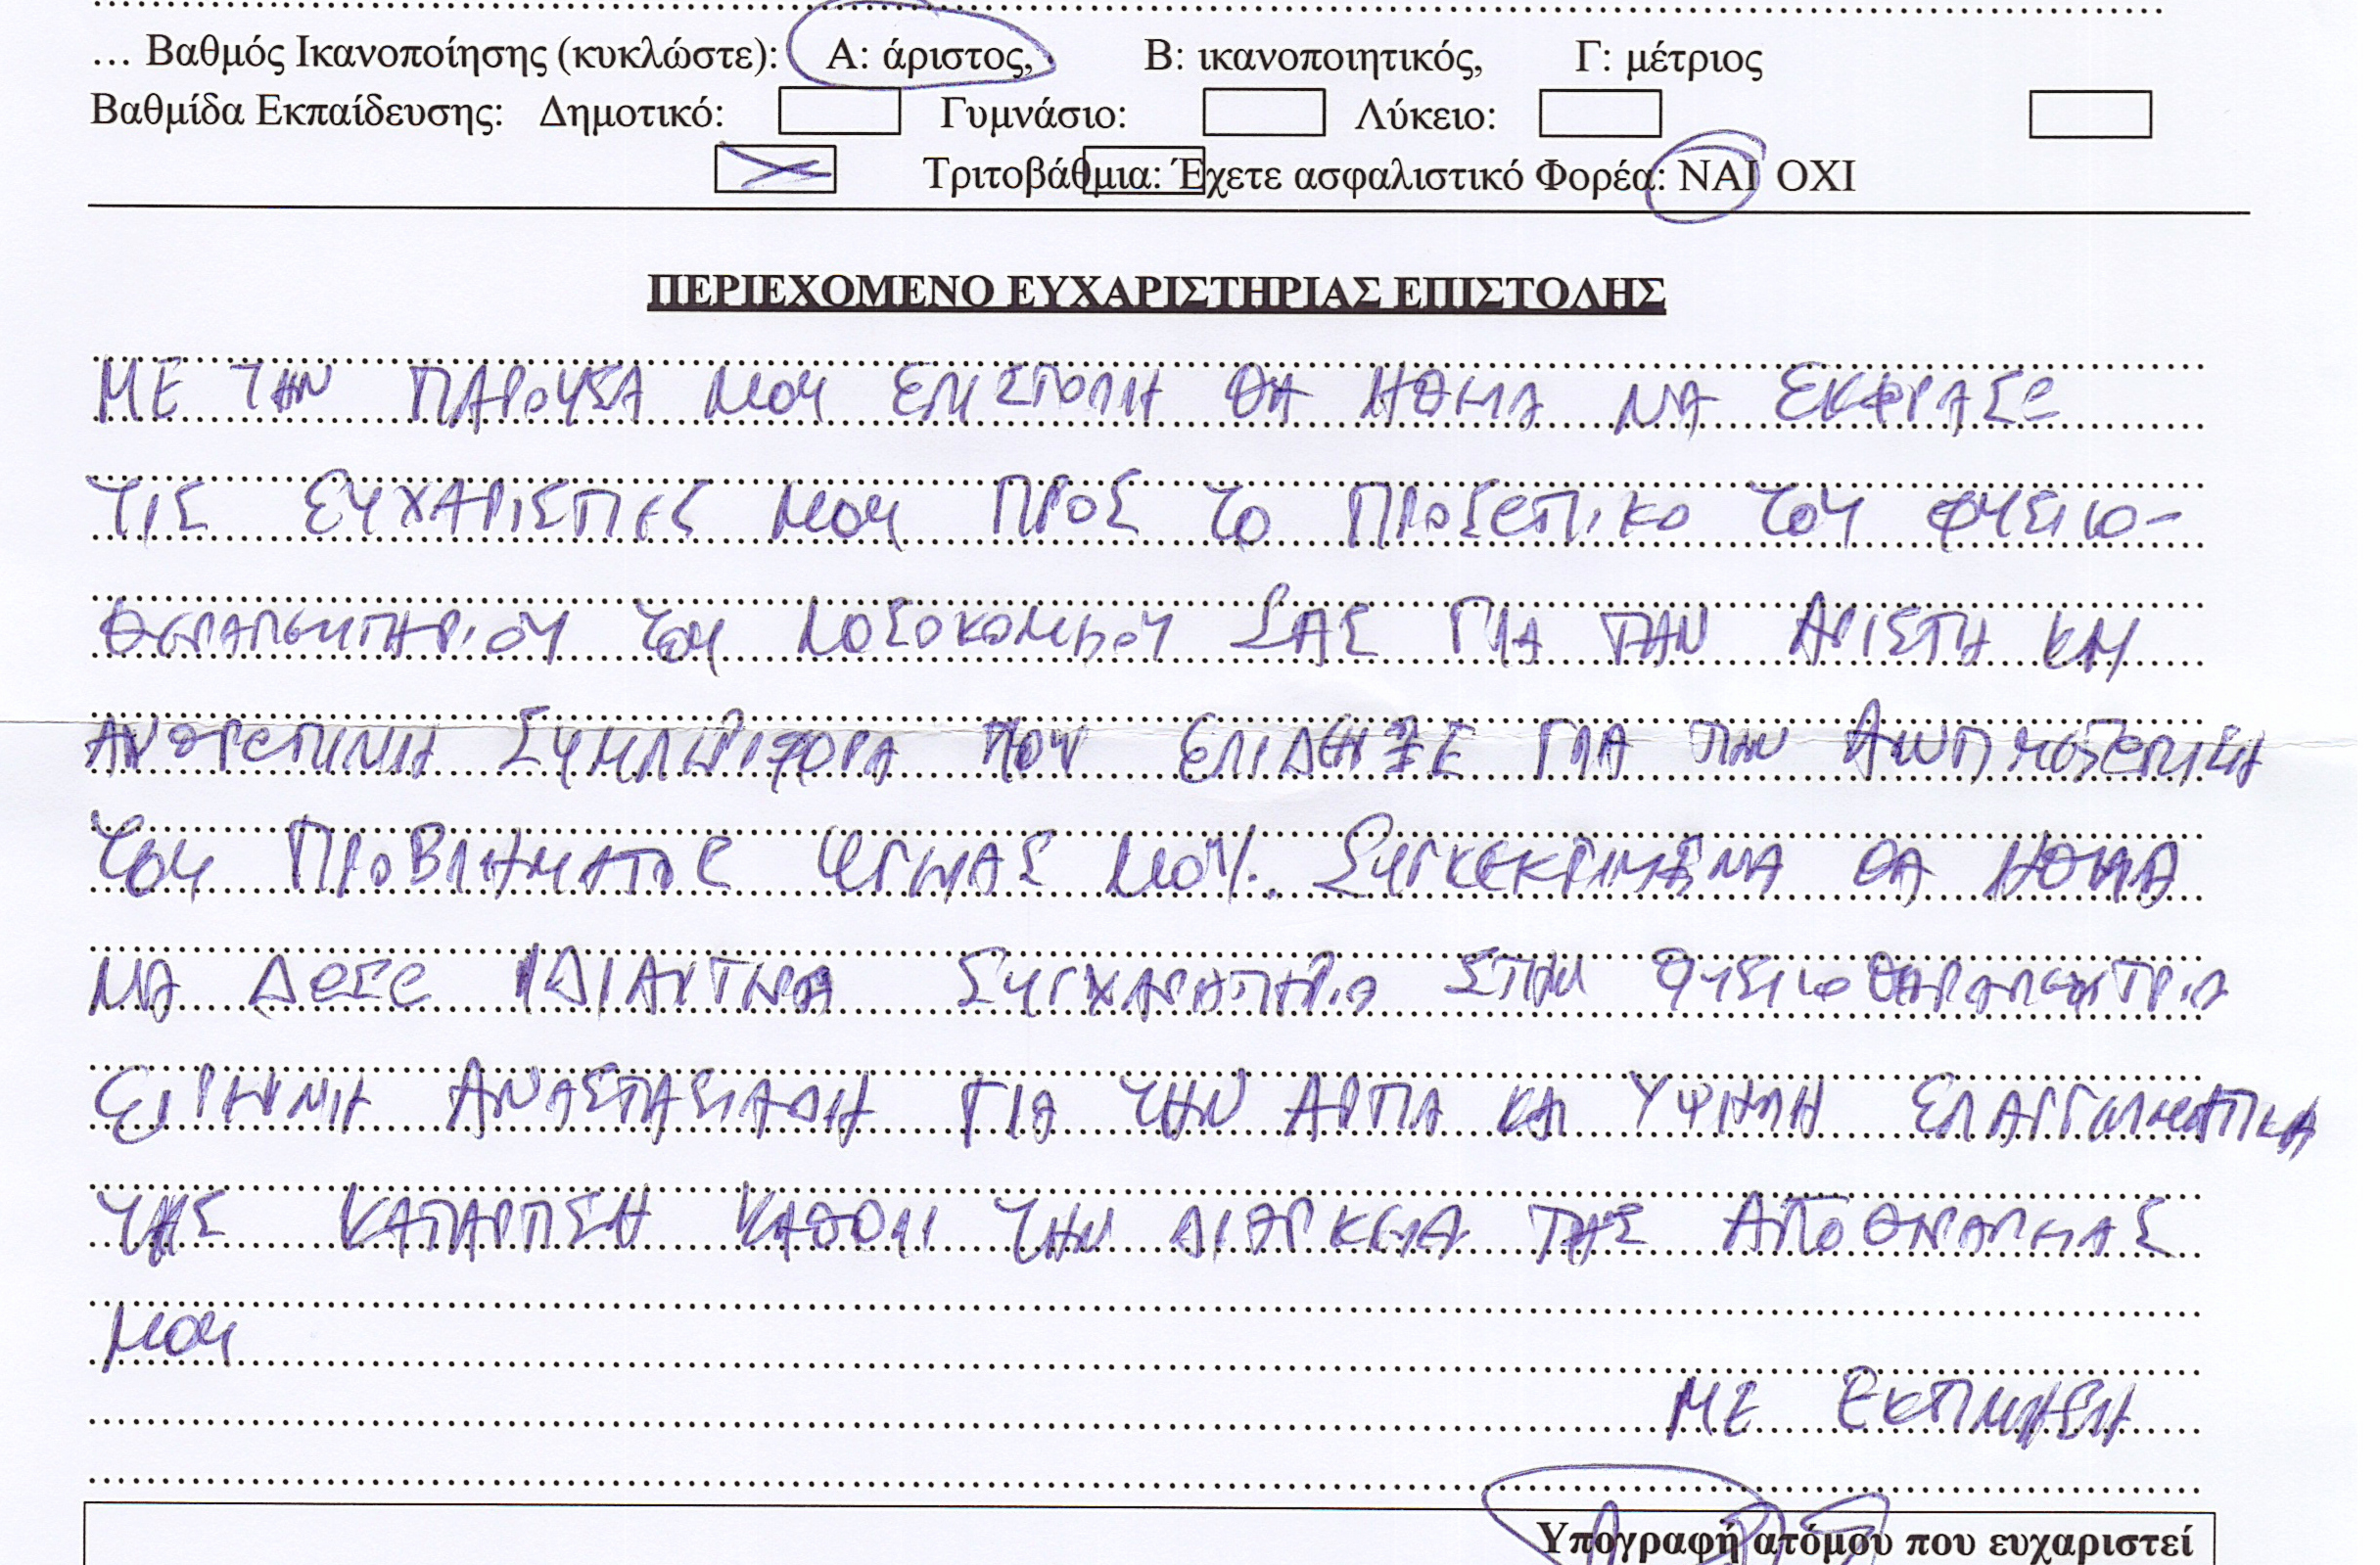 ... Βαθμός Ικανοποίησης (κυκλώστε): Α: άριστος, Β: ικανοποιητικός, Γ: μέτριος
Βαθμίδα Εκπαίδευσης: Δημοτικό: Γυμνάσιο: Λύκειο:
Τριτοβάθμια: Έχετε ασφαλιστικό Φορέα: ΝΑΙ ΟΧΙ
ΠΕΡΙΕΧΟΜΕΝΟ ΕΥΧΑΡΙΣΤΗΡΙΑΣ ΕΠΙΣΤΟΛΗΣ
ΜΕ ΤΗΝ ΠΑΡΟΥΣΑ ΜΟΥ ΕΠΙΣΤΟΛΗ ΘΑ ΗΘΕΛΑ ΝΑ ΕΚΦΡΑΣΩ
ΤΙΣ ΕΥΧΑΡΙΣΤΙΕΣ ΜΟΥ ΠΡΟΣ ΤΟ ΠΡΟΣΩΠΙΚΟ ΤΟΥ ΦΥΣΙΟ-
ΘΕΡΑΠΕΥΤΗΡΙΟΥ ΤΟΥ ΝΟΣΟΚΟΜΕΙΟΥ ΣΑΣ ΓΙΑ ΤΗΝ ΑΡΙΣΤΗ ΚΑΙ
ΑΝΘΡΩΠΙΝΗ ΣΥΜΠΕΡΙΦΟΡΑ ΠΟΥ ΕΠΙΔΕΙΞΕ ΓΙΑ ΤΗΝ ΑΝΤΙΜΕΤΩΠΙΣΗ
ΤΟΥ ΠΡΟΒΛΗΜΑΤΟΣ ΥΓΕΙΑΣ ΜΟΥ. ΣΥΓΚΕΚΡΙΜΕΝΑ ΘΑ ΗΘΕΛΑ
ΝΑ ΔΩΣΩ ΙΔΙΑΙΤΕΡΑ ΣΥΓΧΑΡΗΤΗΡΙΑ ΣΤΗΝ ΦΥΣΙΟΘΕΡΑΠΕΥΤΡΙΑ
ΕΙΡΗΝΗ ΑΝΑΣΤΑΣΙΑΔΗ ΓΙΑ ΤΗΝ ΑΡΤΙΑ ΚΑΙ ΥΨΗΛΗ ΕΠΑΓΓΕΛΜΑΤΙΚΗ
ΤΗΣ ΚΑΤΑΡΤΙΣΗ ΚΑΘΟΛΗ ΤΗΝ ΔΙΑΡΚΕΙΑ ΤΗΣ ΑΠΟΘΕΡΑΠΕΙΑΣ
ΜΟΥ
ΜΕ ΕΚΤΙΜΗΣΗ
Υπογραφή ατόμου που ευχαριστεί